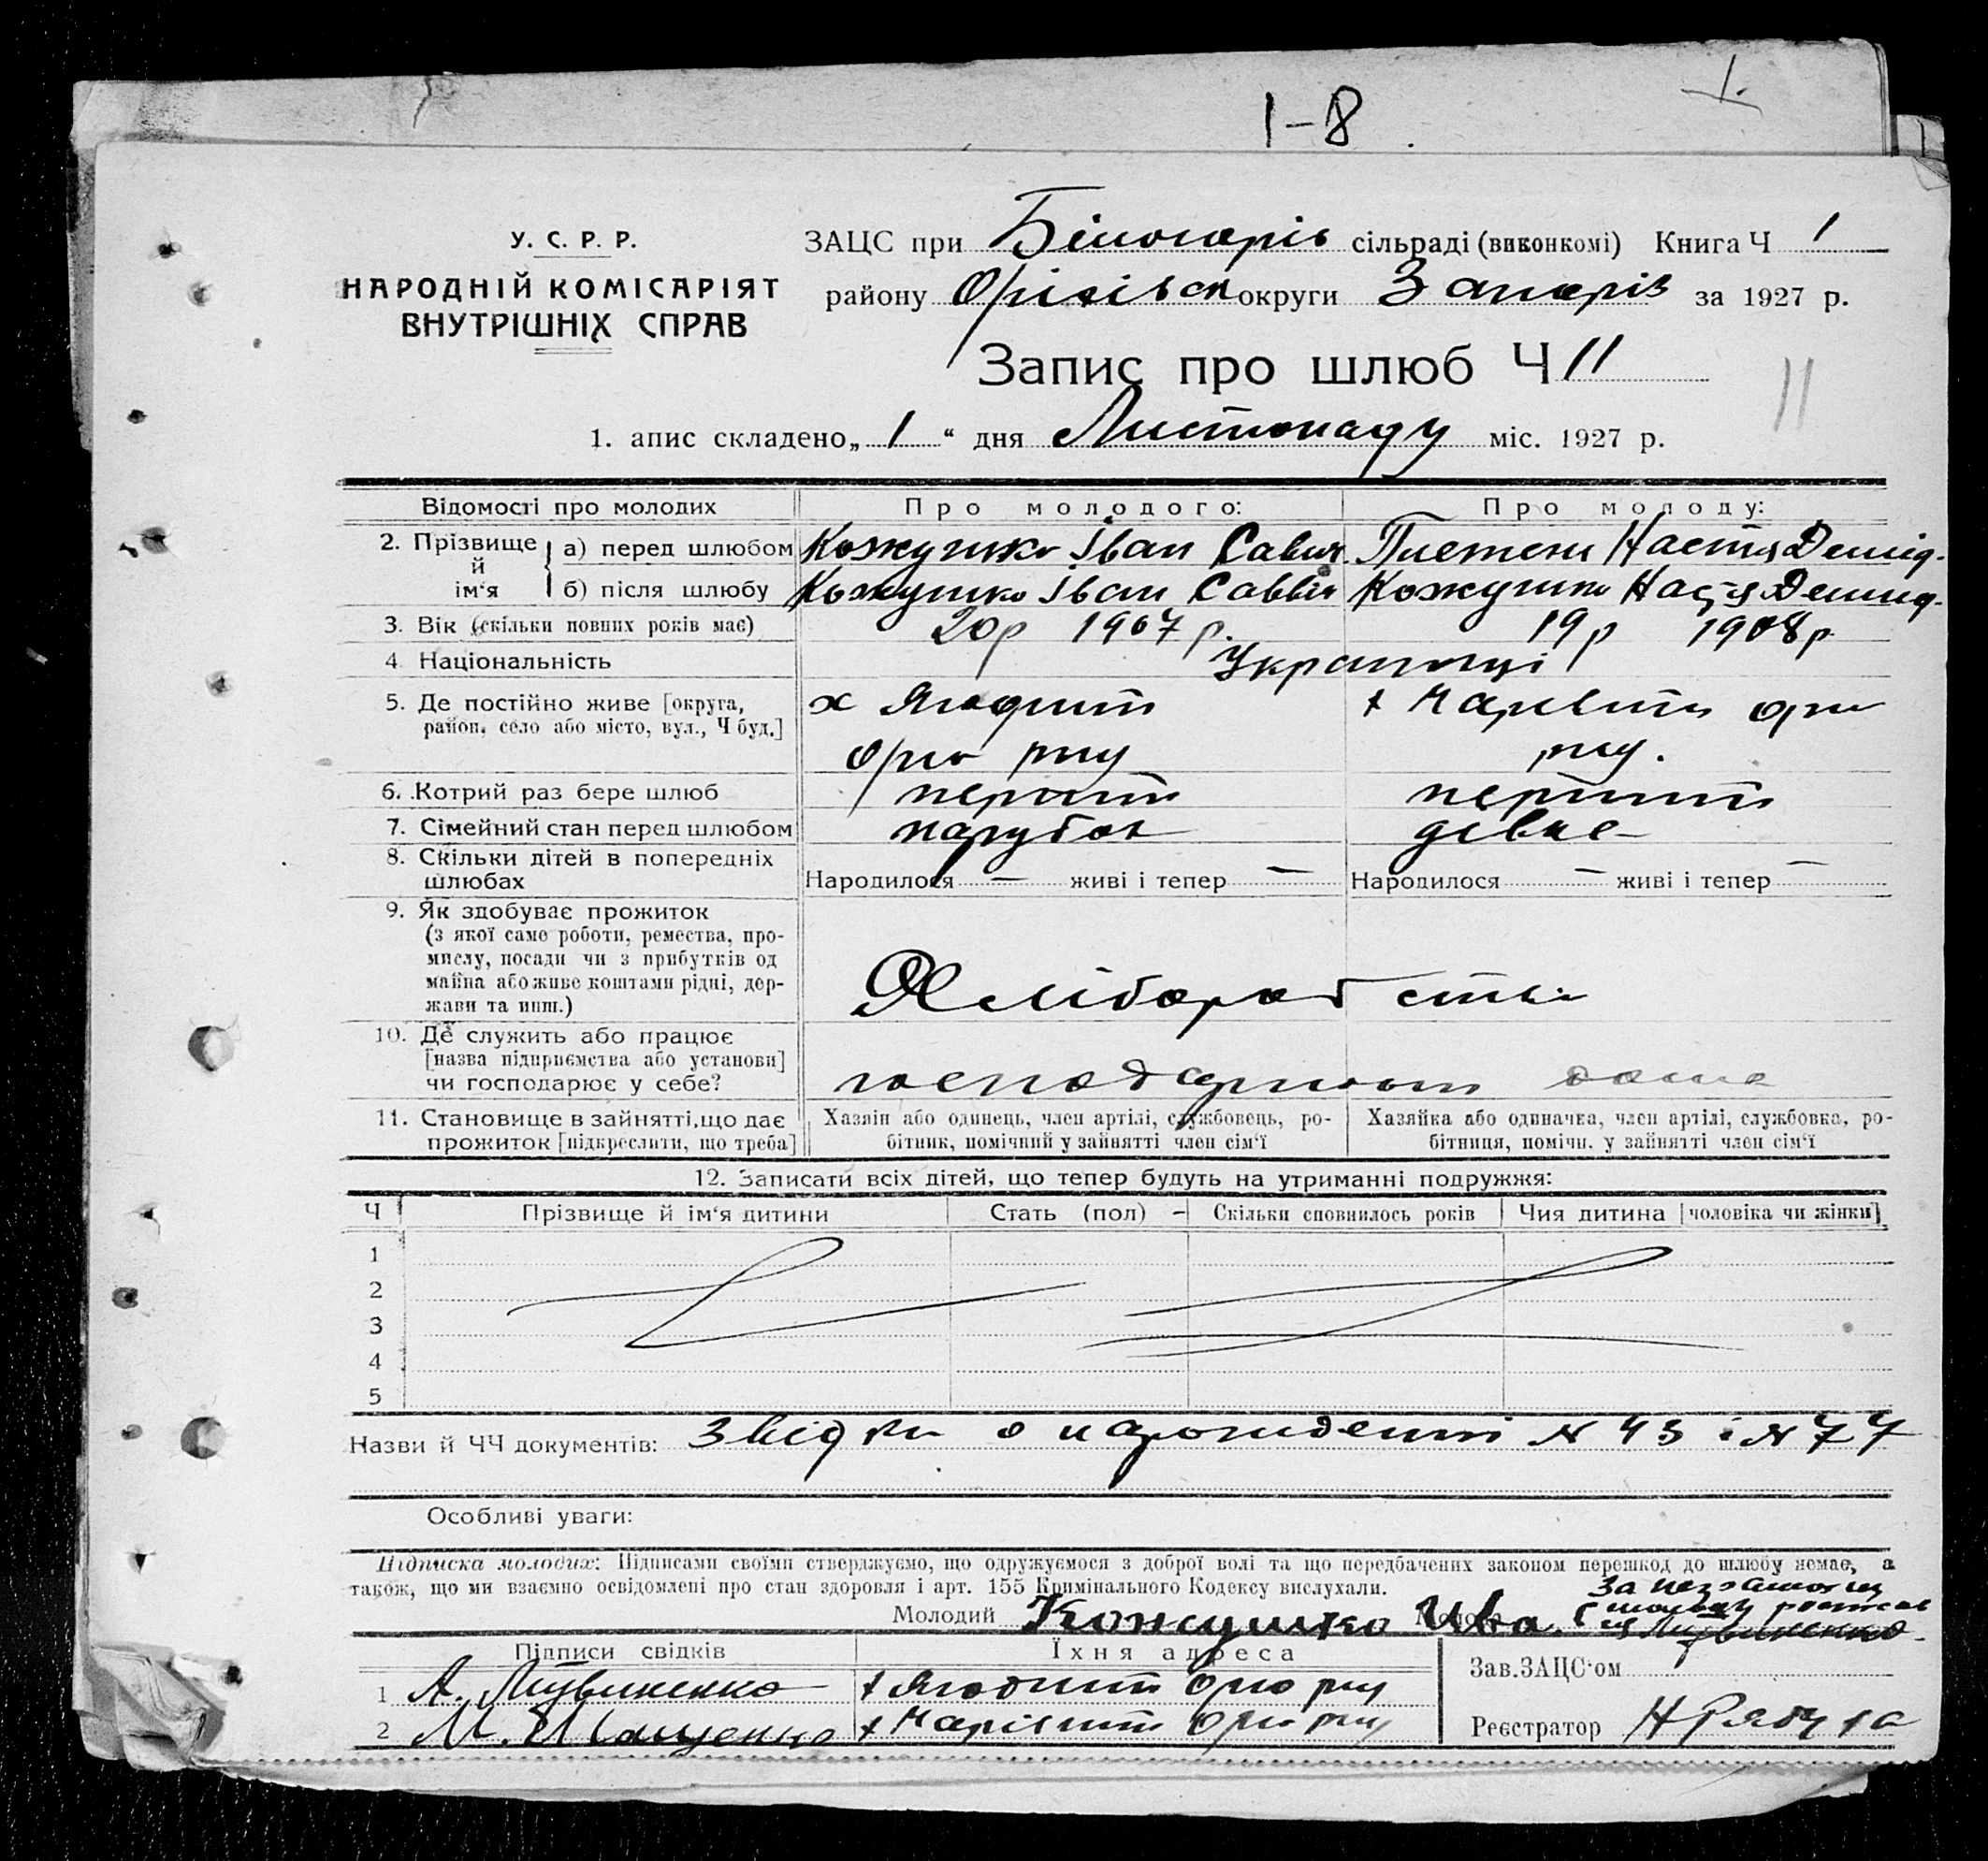 1-8
1.
У. С. Р. Р.
НАРОДНІЙ КОМІСАРІЯТ
ВНУТРІШНІХ СПРАВ
ЗАЦС при Білогорів сільраді (виконкомі) Книга Ч 1
району Оріхівськ округи Запоріз за 1927 р.
Запис про шлюб Ч 11
11
1. апис складено „ 1 “ дня Листопаду міс. 1927 р.
Відомості про молодих
Про молодого:
Про молоду:
2. Прізвище й ім‘я
а) перед шлюбом
Кожушко Іван Савич
Плетень Настя Демид.
б) після шлюбу
Кожушко Іван Саввич
Кожушко Настя Демид.
3. Вік (скільки повних років має)
20р 1907 р.
19р 1908 р
4 Національність
Українці
5. Де постійно живе [округа,
район, село або місто, вул., Ч буд.]
х Ягодит
оріх рну
х
рну.
6. Котрий раз бере шлюб
перший
перший
7. Сімейний стан перед шлюбом
парубок
дівка
8. Скільки дітей в попередніх
шлюбах
Народилося — живі і тепер —
Народилося — живі і тепер —
9. Як здобуває прожиток
(з якої саме роботи, ремества, про-
мислу, посади чи з прибутків од
майна або живе коштами рідні, дер-
жави та инш.)
Хліборобство
10. Де служить або працює
[назва підприємства або установи]
чи господарює у себе?
господарюют дома
11. Становище в зайнятті, що дає
прожиток [підкреслити, що треба]
Хазяїн або одинець, член артілі, службовець, ро-
бітник, помічний у зайнятті член сім‘ї
Хазяйка або одиначка, член артілі, службовка, ро-
бітниця, помічн. у зайнятті член сім‘ї
12. Записати всіх дітей, що тепер будуть на утриманні подружжя:
Ч
Прізвище й ім‘я дитини
Стать (пол)
Скільки сповнилось років
Чия дитина [чоловіка чи жінки]
1
2
3
4
5
Назви й ЧЧ документів: Звідки о нарожденні N 43 і N 77
Особливі уваги:
Підписка молодих: Підписами своїми стверджуємо, що одружуємося з доброї волі та що передбачених законом перешкод до шлюбу немає, а
також, що ми взаємно освідомлені про стан здоровля і арт. 155 Кримінального Кодексу вислухали.
Молодий Кожушко Ива. С
Молода
Підписи свідків
Їхня адреса
1 А. Литвиненко
х Ягодит оріх рну
2 М. Іващенко
х оріх рну
Зав. ЗАЦС‘ом
Реєстратор Н Рябуха